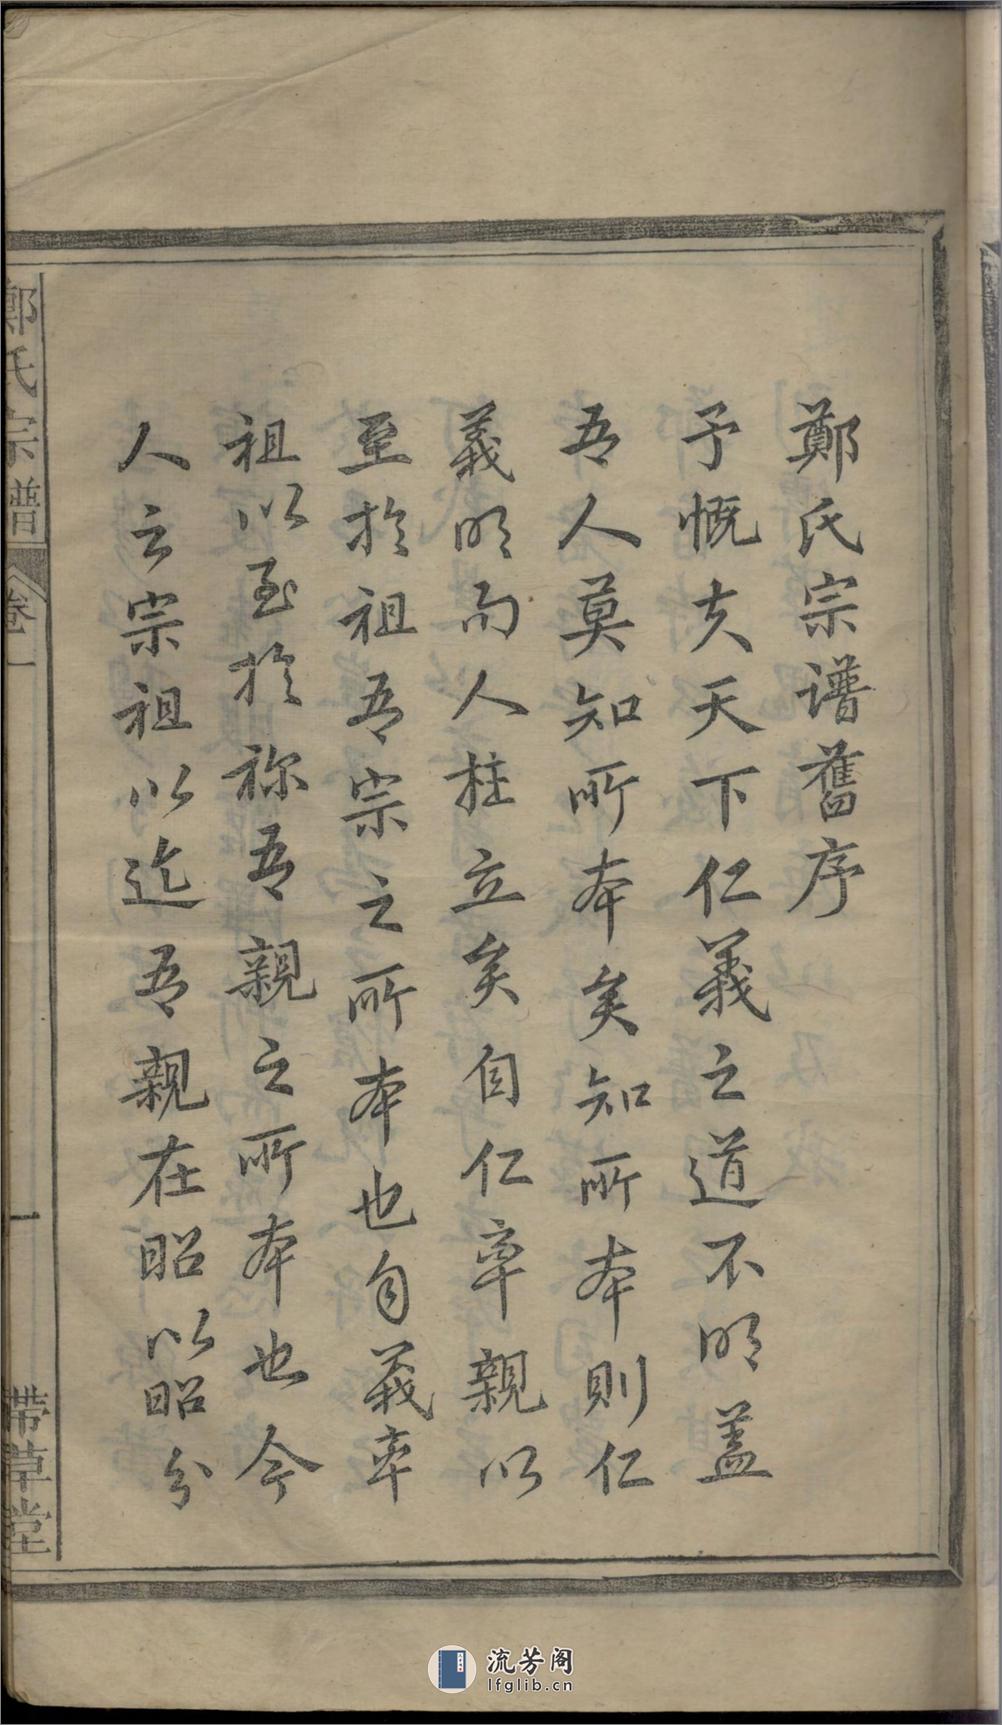 鄭氏宗谱舊序
予慨夫天下仁義之道不明蓋
吾人莫知所本矣知所本則仁
義明而人柱立矣自仁率親以
至於祖吾宗之所本也自義率
祖以至於祢吾親之所本也今
人之宗祖以迄吾親在昭以昭分
鄭氏宗譜
卷一
一
帶草堂
流芳阁
lfglib.cn